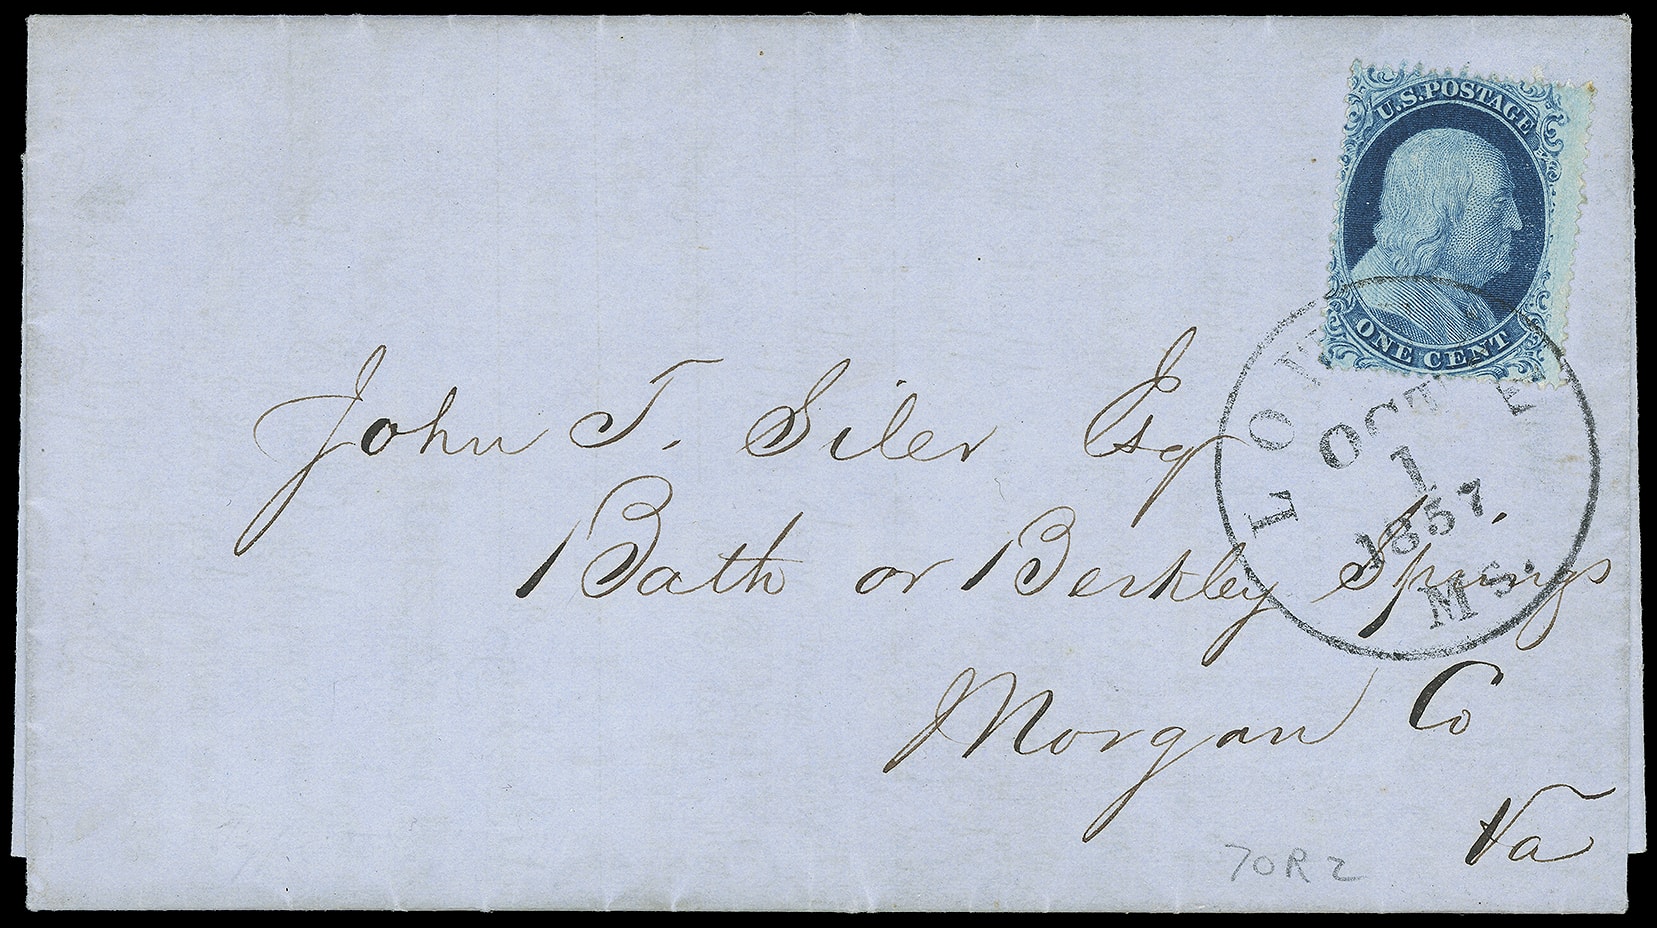 U.S. POSTAGE
ONE CENT
OCT
1
1857
Ms.
John T. Siler Esq
Bath or Berkley Springs
Morgan Co
Va
70R2